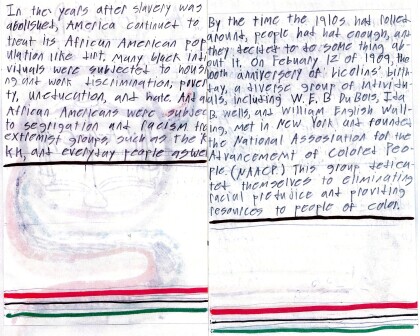 In the years after slavery was
abolished, America continued to
treat its African American pop
ulation like dirt. Many black indi
viduals were subjected to housi
ng and work discrimination, pover
ty, uneducation, and hate. And
African Americans were subjec
to segregation and racism fro
extremist groups, such as The K
KK, and everyday people as we
By the time the 1910s had rolled
around, people had had enough, and
they decided to do something ab-
out it. On Febuary 12 of 1909, the
100th anniversery of Licolins' birth-
day, a diverse group of individu-
als, including W. E. B DuBois, Ida
B. wells, and William English Walli
ng, met in New York and founded
the National Association for the
Advancememt of Colored Peo-
ple. (NAACP.) This group dedica-
ted themselves to eliminating
racial prejudice and providing
resources to people of color.